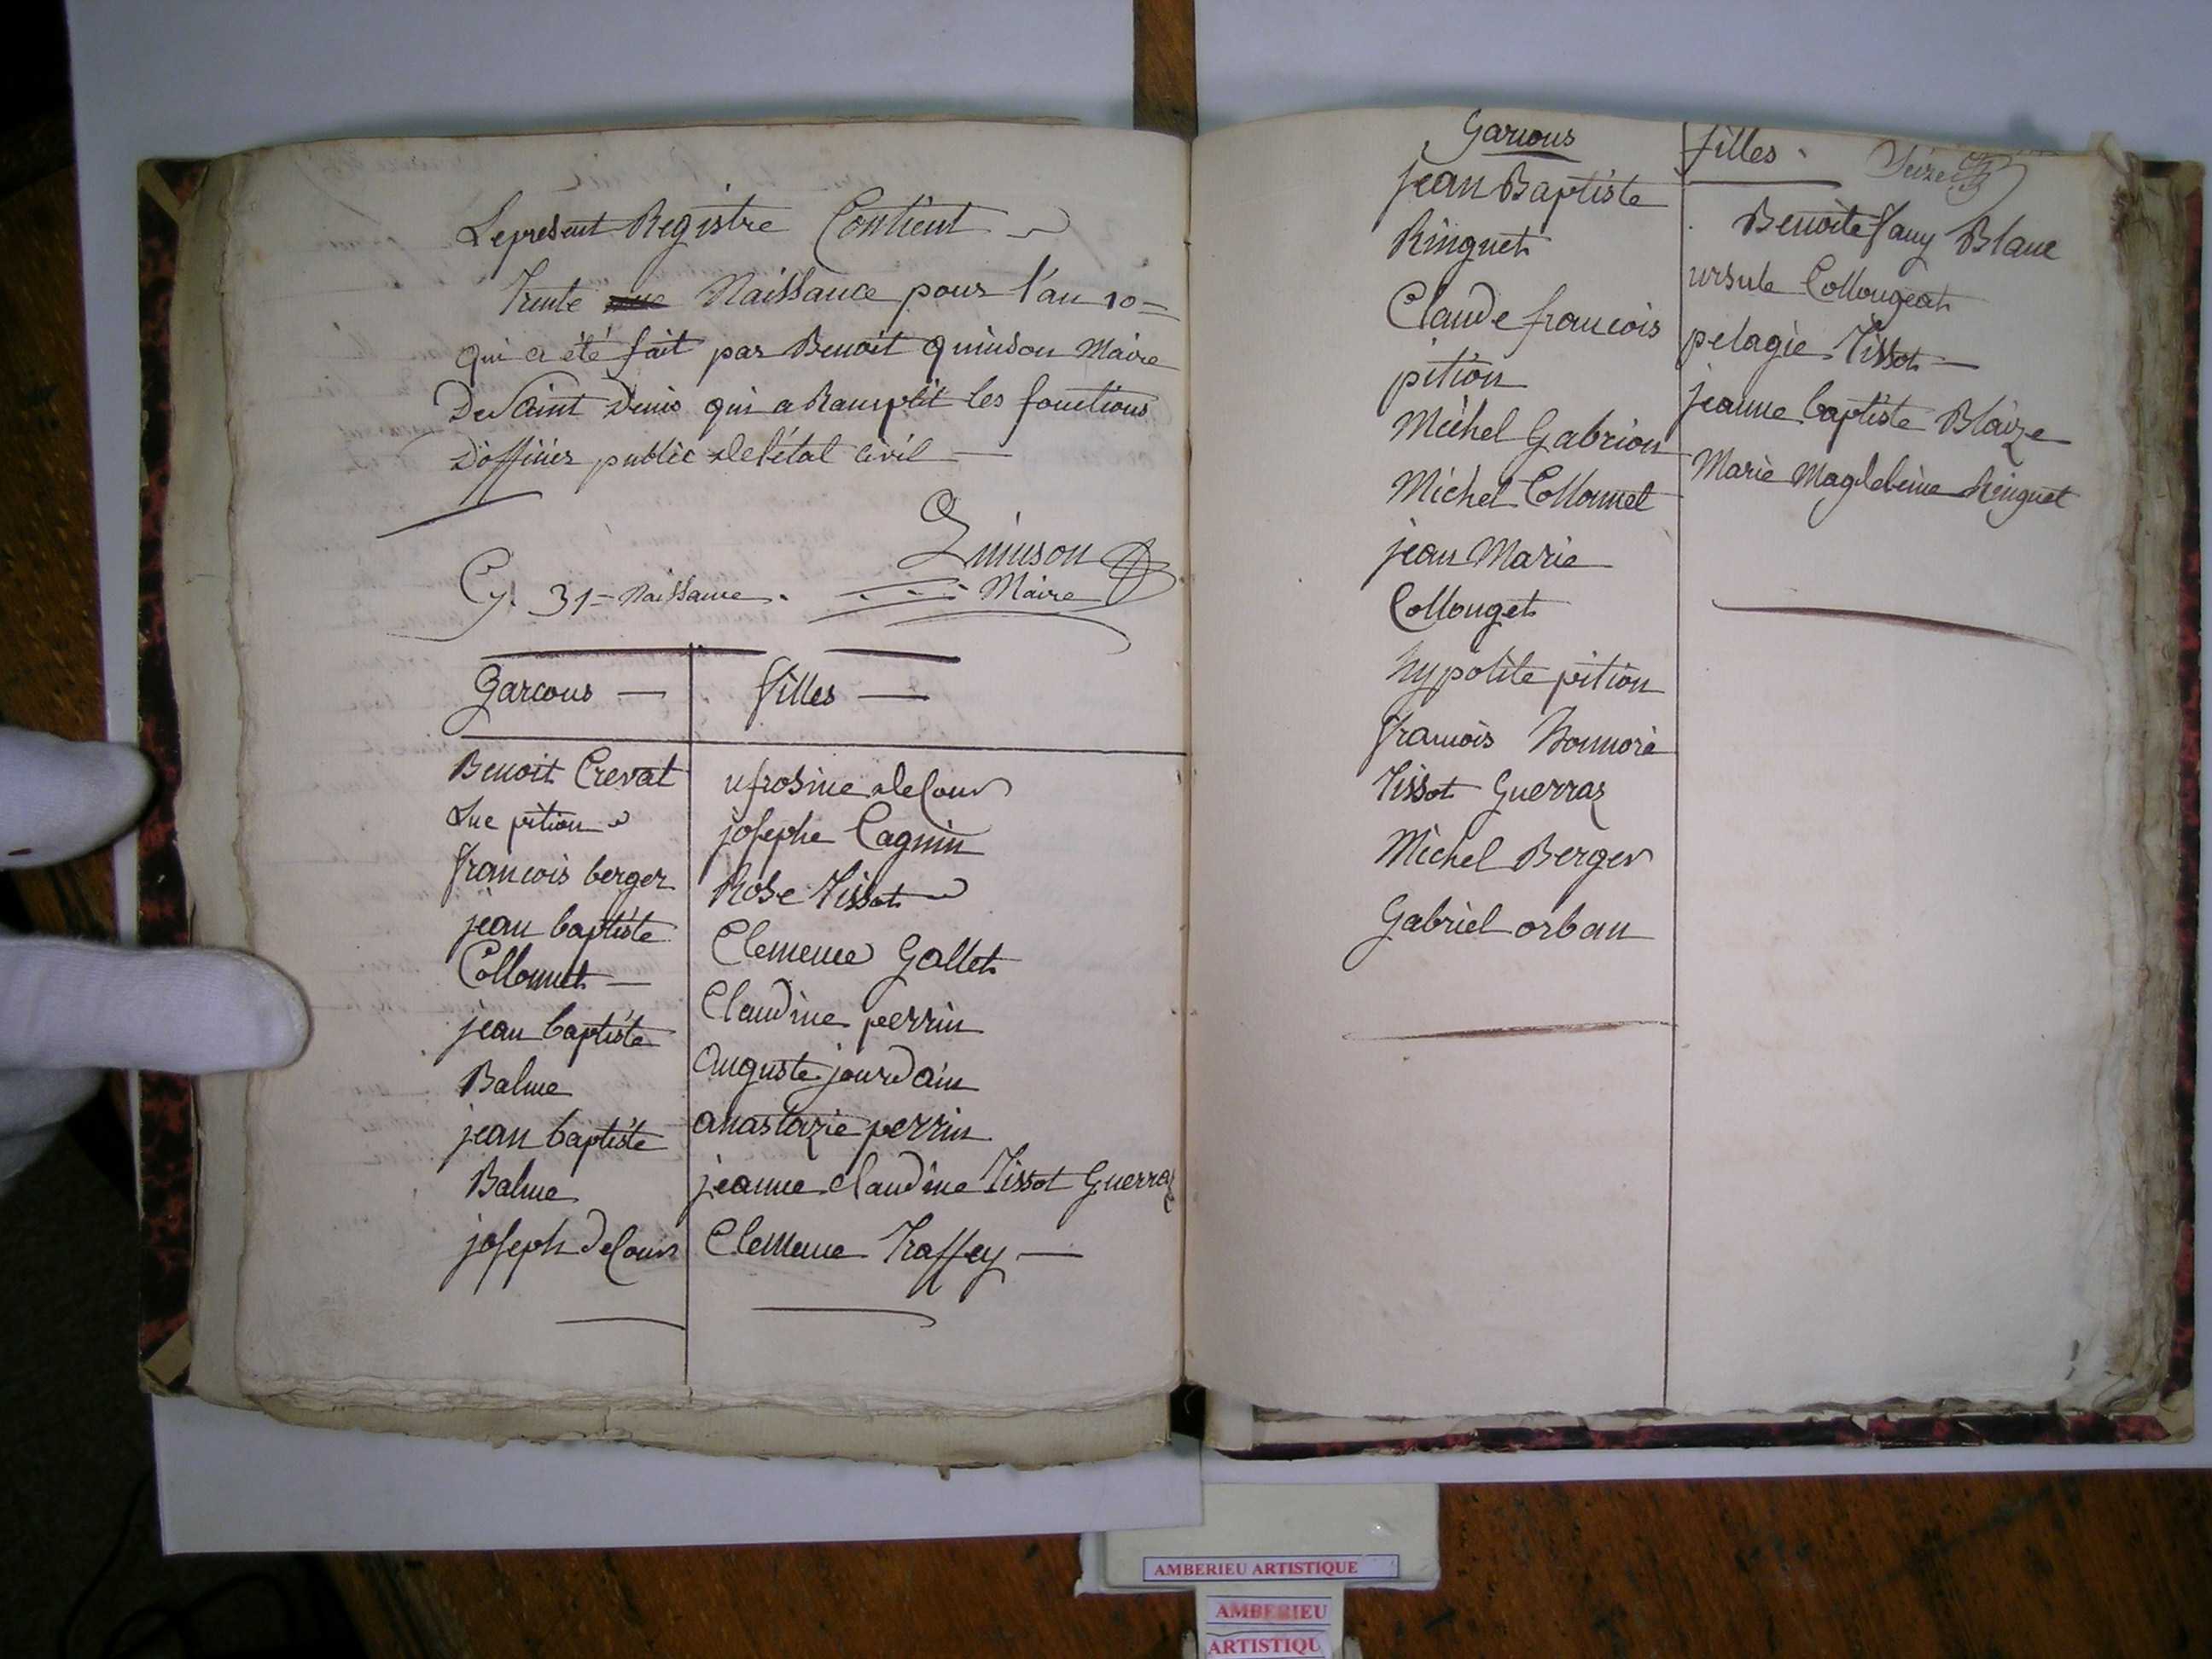 Le present Registre Contient
Trente Naissance pour l'an 10=
qui a été fait par Benoit quinson Maire
De Saint Denis qui a Ramplit les fonctions
D'officier public de l'état civil —
Quinson
Cy. 31= Naissance. Maire
Garcons — filles —
Benoit Creval
Luc pition
francois berger
jean baptiste
Collonnet —
jean baptiste
Balme
jean baptiste
Balme
joseph deCour
ufrosine deCour
josephe Cagnin
Rose Tissot
Clemence Gallet
Claudine perrin
auguste jourdain
anastazie perrin
jeanne claudine Tissot Guerraz
Clemence Traffey —
Garcons
jean Baptiste
Ringuet
Claude francois
pition
Michel Gabrion
Michel Collonnet
jean Marie
Collonget
hypolite pition
francois honnoré
Tissot Guerraz
Michel Berger
Gabriel orban
filles.
Seize
Benoite fany Blanc
ursule Collongeat
pelagie Tissot —
jeanne baptiste Blaize
Marie Magdeleine Ringuet
AMBERIEU ARTISTIQUE
AMBERIEU
ARTISTIQU